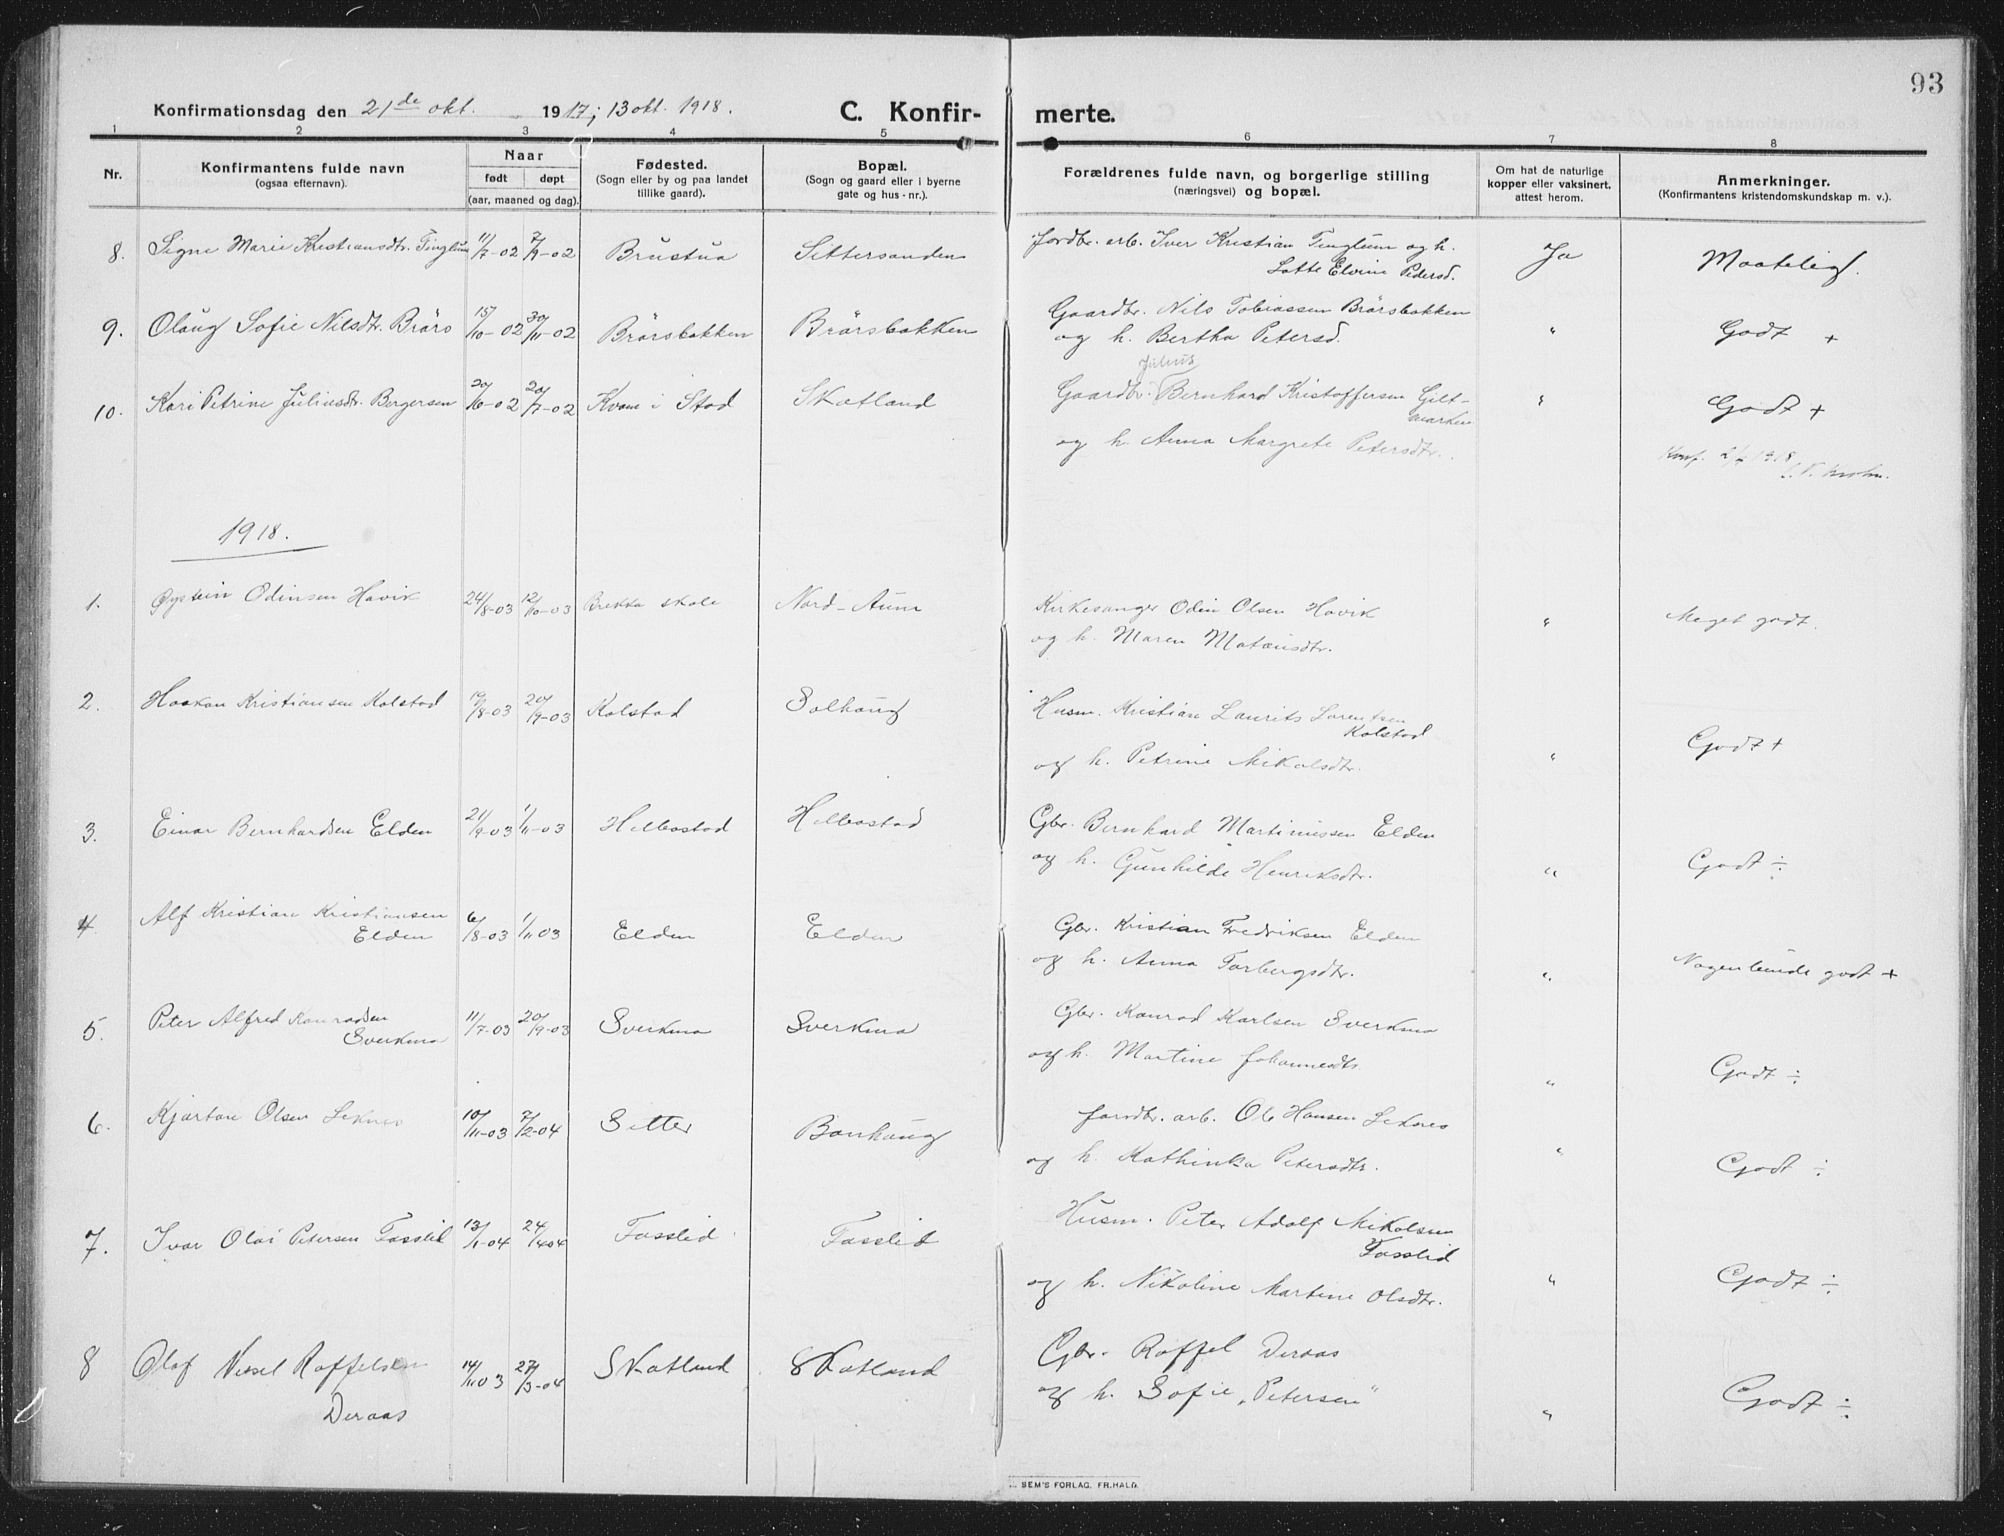 93
Konfirmationsdag den 21de okt. 1917; 13 okt. 1918.
C. Konfir-
merte.
1 2 3 4 5 6 7 8
Nr.
Konfirmantens fulde navn
(ogsaa efternavn).
Naar
født døpt
(aar, maaned og dag).
Fødested.
(Sogn eller by og paa landet
tillike gaard).
Bopæl.
(Sogn og gaard eller i byerne
gate og hus-nr.).
Forældrenes fulde navn, og borgerlige stilling
(næringsvei) og bopæl.
Om hat de naturlige
kopper eller vaksinert.
attest herom.
Anmerkninger.
(Konfirmantens kristendomskundskap m. v.).
8. Signe Marie Kristiansdtr. Tinglum 11/7-02 7/9-02 Brustua Sittersanden Jordbr. arb. Iver Kristian Tinglum og h. Ja Maatelig.
Lotte Elvine Pedersd.
9. Olaug Sofie Nilsdtr. Brørs 15/10-02 30/11-02 Brørsbakken Brørsbakken Gaardbr. Nils Tobiassen Brørsbakken " Godt +
og h. Bertha Petersd.
Julius
10. Kari Petrine Juliusdtr. Bergersen 20/6-02 20/7-02 Kvam i Stod Skatland Gaardbr. Bernhard Kristoffersen Gilt- " Godt +
marken
og h. Anna Margrete Petersdtr. Konf. 1918
1918.
1. Øystein Odinsen Havik 24/8-03 12/10-03 Brekka skole Nord-Aunn Kirkesanger Odin Olsen Havik " Meget godt.
og h. Maren Mataeusdtr.
2. Haakon Kristiansen Kolstad 19/8-03 20/9-03 Kolstad Solhaug Husm. Kristian Laurits Lorentsen
Kolstad
og h. Petrine Mikalsdtr. " Godt +
3. Einar Bernhardsen Elden 21/9-03 1/11-03 Helbostad Helbostad Gbr. Bernhard Martinussen Elden
og h. Gunhilde Henriksdtr. " Godt ÷
4. Alf Kristian Kristiansen
Elden 6/8-03 1/11 03 Elden Elden Gbr. Kristian Fredriksen Elden
og h. Anna Torbergsdtr. " Nogenlunde godt +
5. Peter Alfred Konradsen
Sverkmo 11/7-03 20/9-03 Sverkmo Sverkmo Gbr. Konrad Karlsen Sverkmo
og h. Martine Johannesdtr. " Godt ÷
6. Kjartan Olsen Leknes 10/11-03 7/2-04 Sitter Bonhaug Jordbr. arb. Ole Hansen Leknes
og h. Kathinka Petersdtr. " Godt ÷
7. Ivar Olai Petersen Fosslid 13/1-04 24/4 04 Fosslid Fosslid Husm. Peter Adolf Mikalsen
Fosslid
og h. Nikoline Martine Olsdtr. " Godt ÷
8 Olaf Nissel Roffelsen
Deraas 14/11 03 27/3-04 Skatland Skatland Gbr. Roffel Deraas
og h. Sofie „Petersen" " Godt ÷
SEM'S FORLAG, FR.HALD.